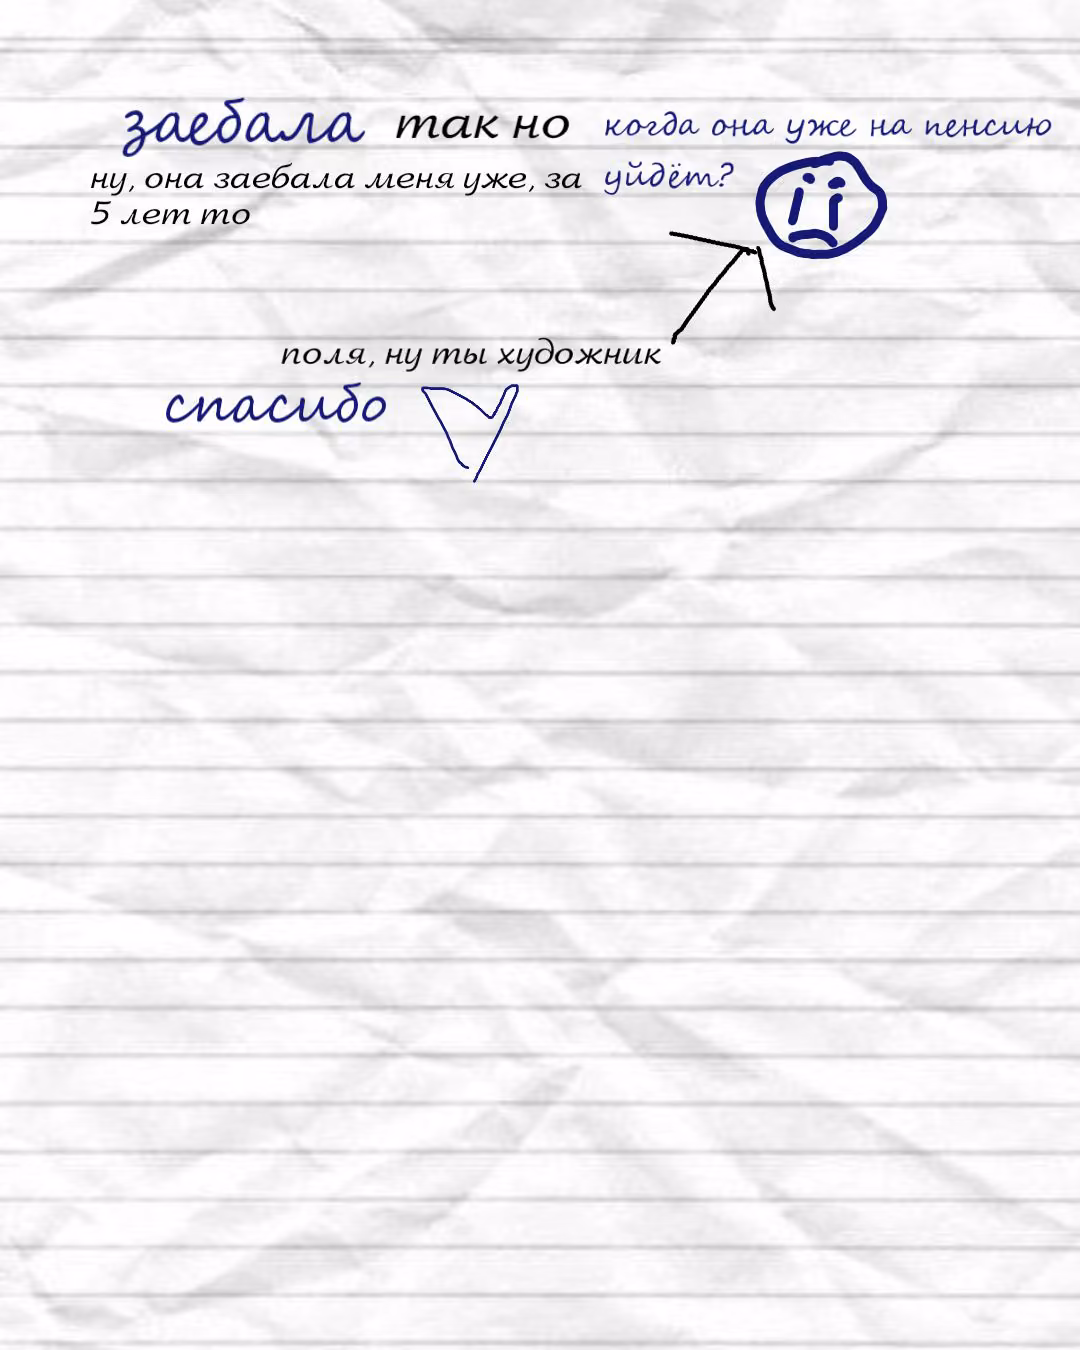 заебала так но когда она уже на пенсию
ну, она заебала меня уже, за уйдёт?
5 лет то
поля, ну ты художник
спасибо